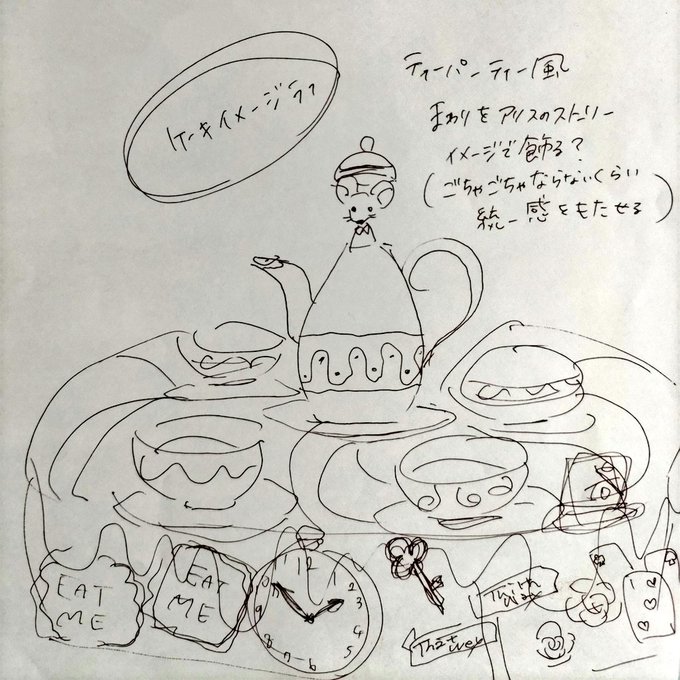 ケーキイメージラフ
ティーパーティー風
まわりをアリスのストーリー
イメージで飾る?
(ごちゃごちゃならないくらい
統一感をもたせる)
EAT
ME
EAT
ME
12
1
2
3
4
5
6
7
8
9
10
This
way
That
way